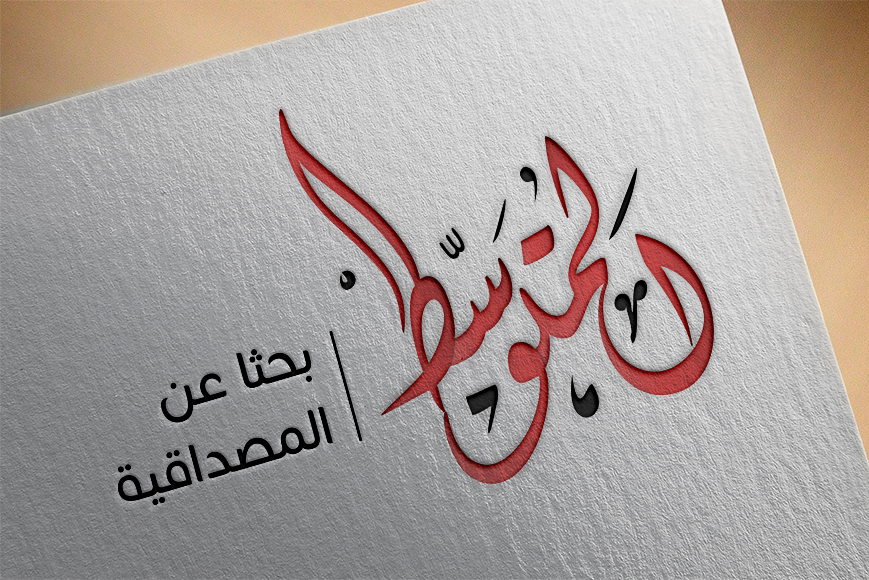 المتوسط
بحثا عن
المصداقية